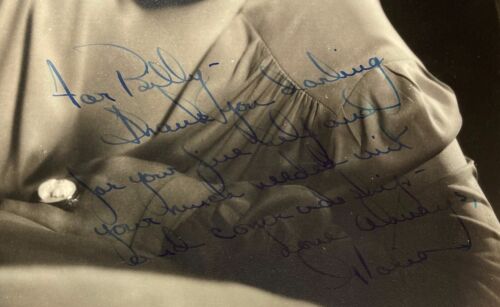 For Billy -
Thank you darling
for your fine help and
your much needed wit
and comradeship -
Love Always,